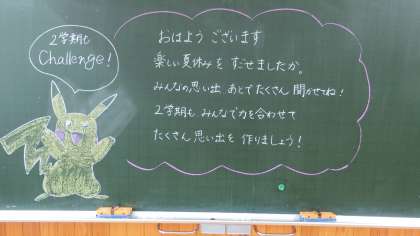 2学期も
Challenge!
おはよう ございます
楽しい夏休みを すごせましたか。
みんなの思い出 あとで たくさん 聞かせてね!
2学期も みんなで力を合わせて
たくさん 思い出を 作りましょう!